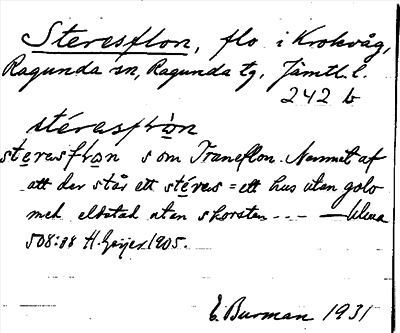 Steresflon, flo i Krokvåg,
Ragunda sn, Ragunda tg, Jämtl. l.
242 b
stéresflo̱n
ste̱resflo̱n som Traneflon. Namnet af
att der står ett sté̱res = ett hus utan golv
med eldstad utan skorsten --- —
508:88 H. Geijer 1905.
E. Burman 1931